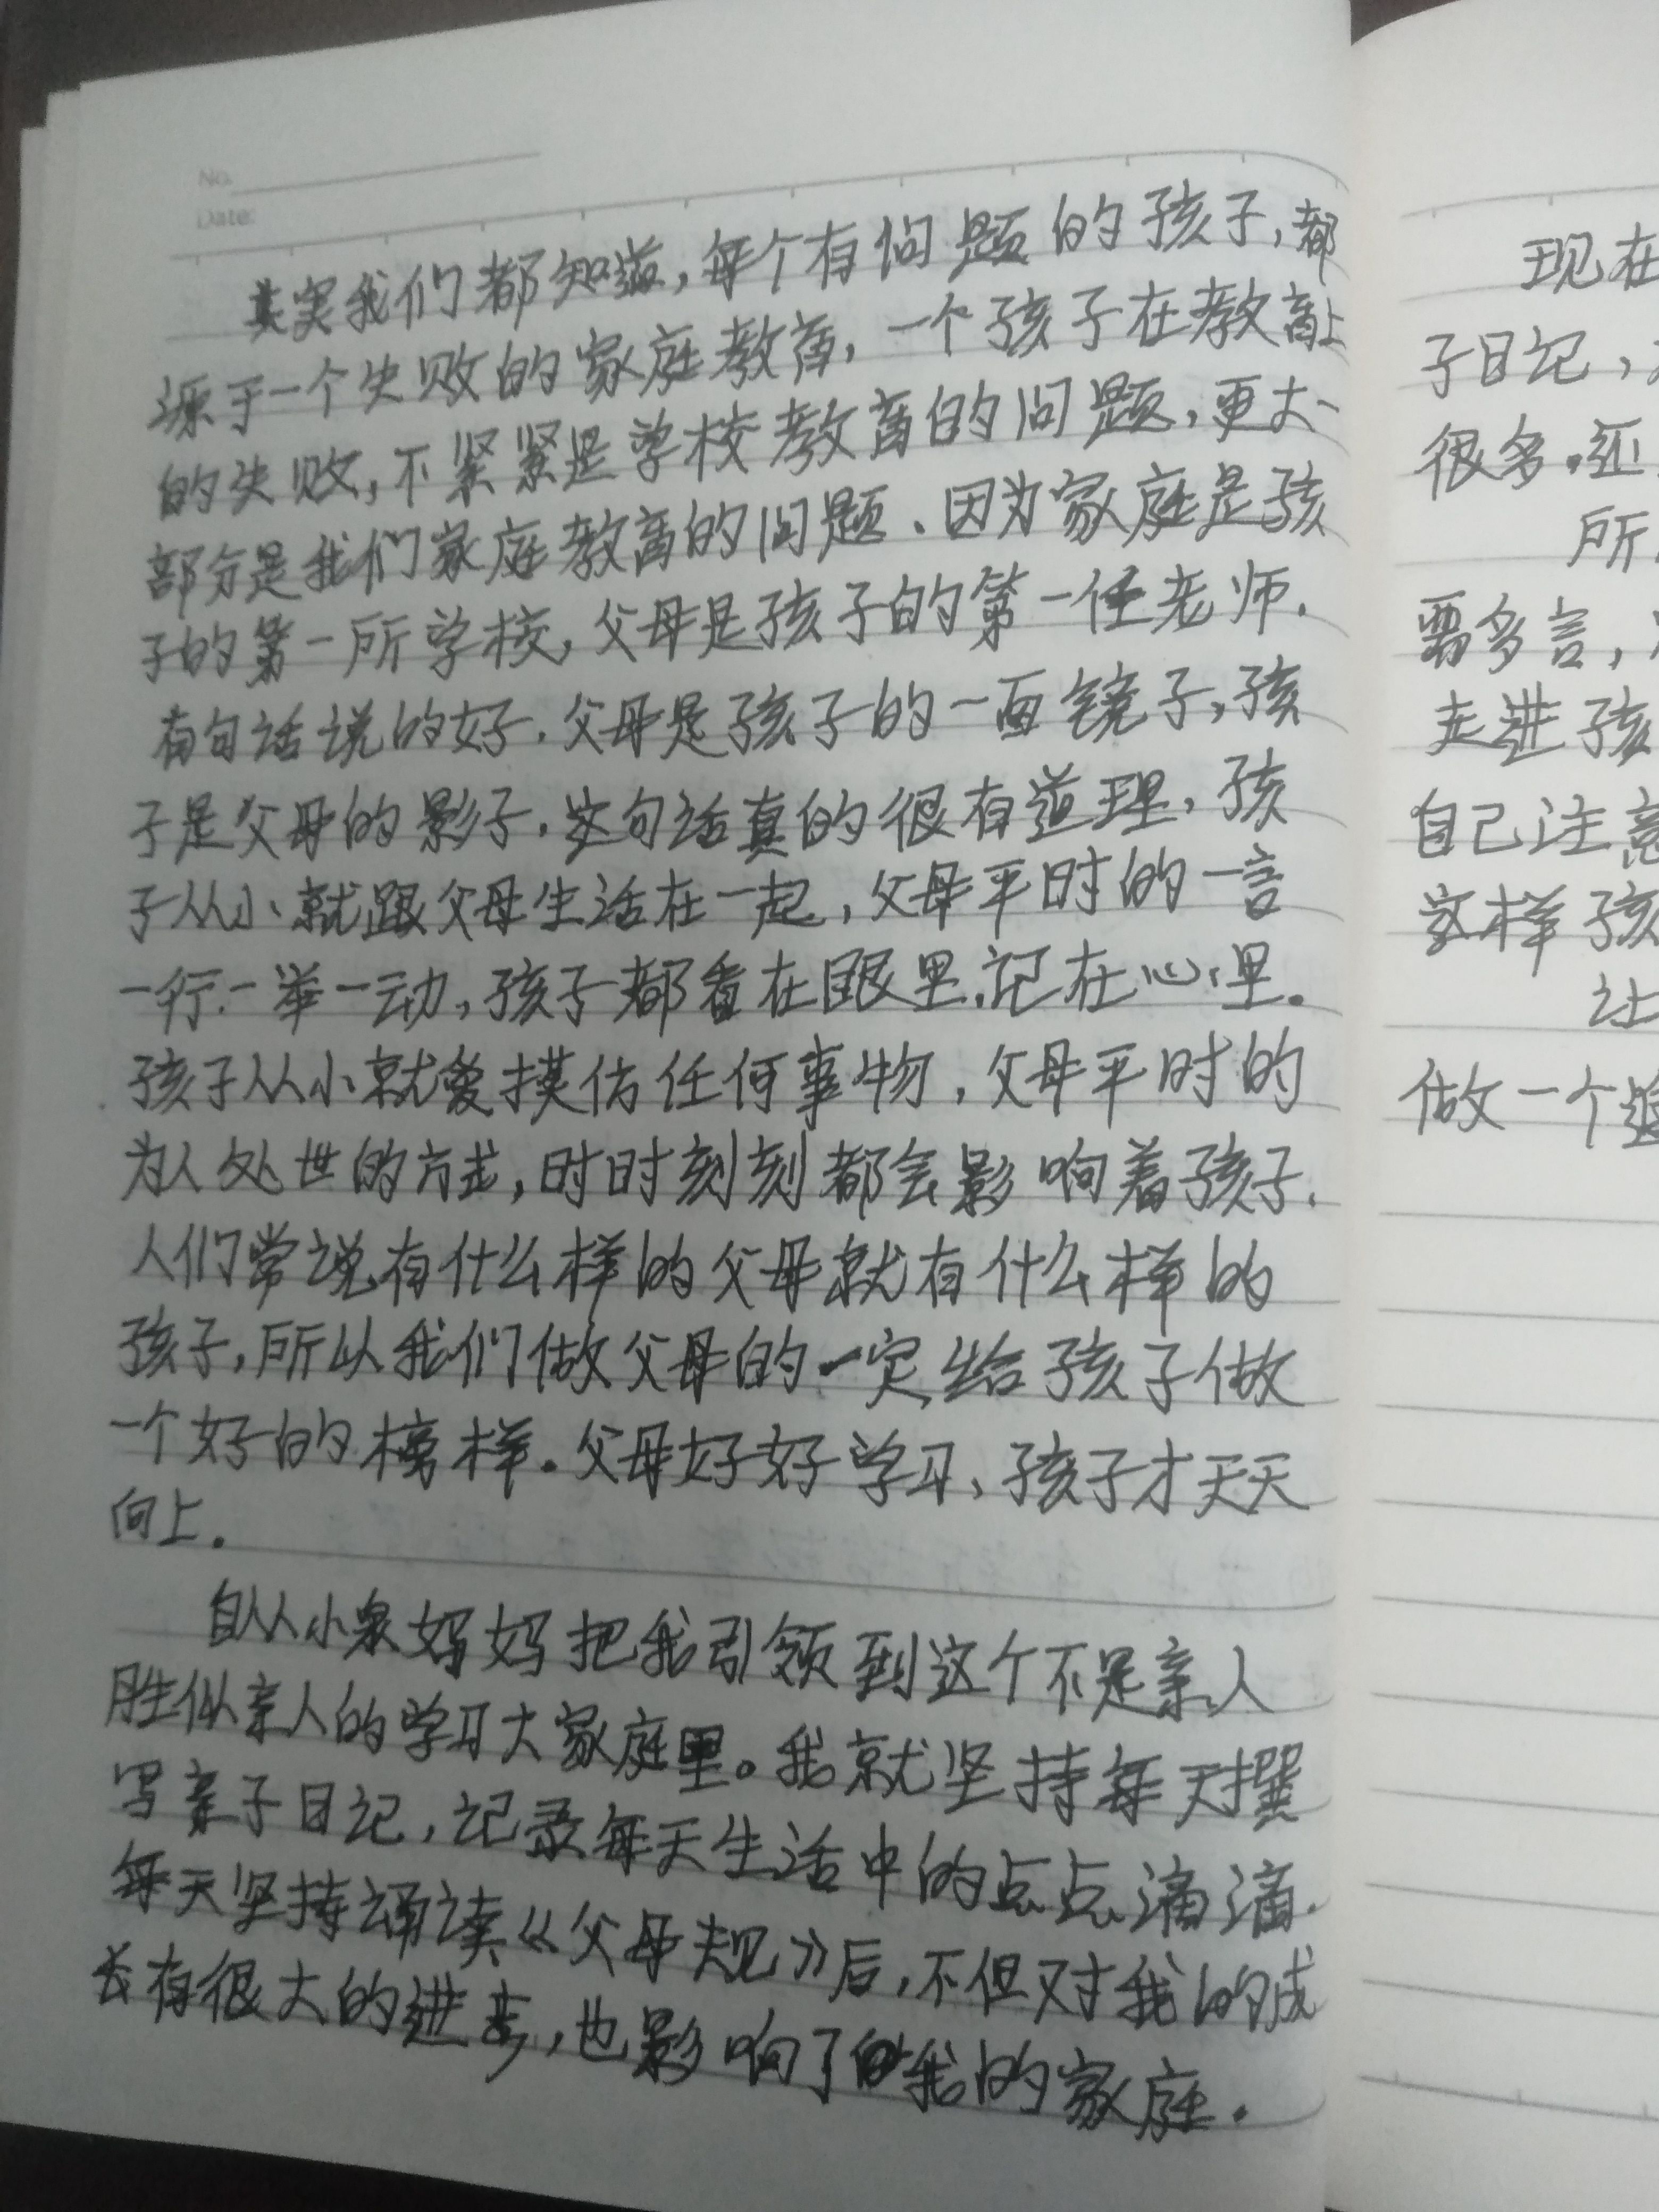 No.
Date:
其实我们都知道,每个有问题的孩子,都
源于一个失败的家庭教育,一个孩子在教育上
的失败,不紧紧是学校教育的问题,更大一
部分是我们家庭教育的问题、因为家庭是孩
子的第一所学校,父母是孩子的第一任老师.
有句话说的好.父母是孩子的一面镜子,孩
子是父母的影子.这句话真的很有道理,孩
子从小就跟父母生活在一起,父母平时的一言
一行.一举一动,孩子都看在眼里.记在心里。
孩子从小就爱摸仿任何事物,父母平时的
为人处世的方式,时时刻刻都会影响着孩子.
人们常说有什么样的父母就有什么样的
孩子,所以我们做父母的一定给孩子做
一个好的榜样.父母好好学习,孩子才天天
向上.
自从小泉妈妈把我引领到这个不是亲人
胜似亲人的学习大家庭里。我就坚持每天撰
写亲子日记,记录每天生活中的点点滴滴.
每天坚持诵读《父母规》后,不但对我的成
长有很大的进步,也影响了我的家庭.
现在
子日记,
很多.还
所
需多言,
走进孩
自己注意
这样孩
让
做一个